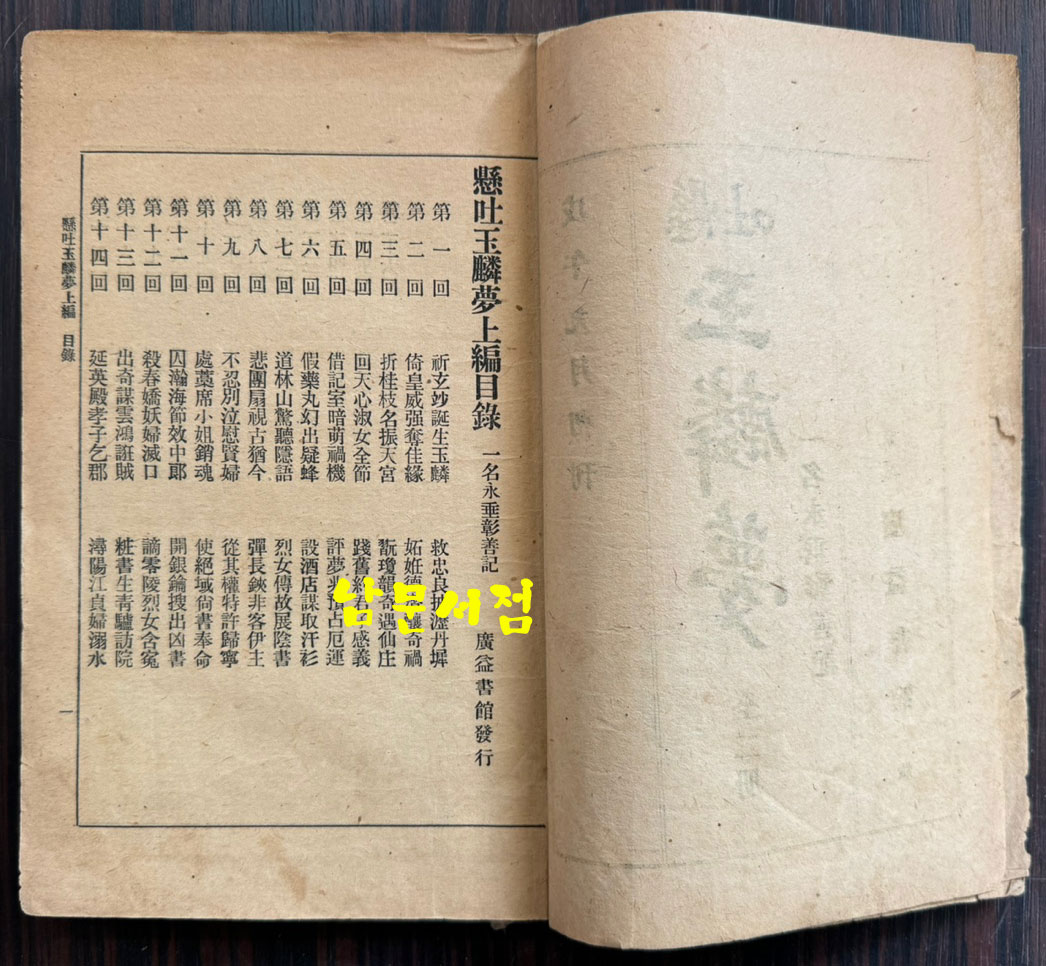 懸吐玉麟夢上編目錄 一名永垂彰善記 廣益書館發行
第一回 祈玄妙誕生玉麟 救忠良披瀝丹墀
第二回 倚皇威强奪佳緣 妬姙德釀奇禍
第三回 折桂枝名振天宮 翫瓊韻奇遇仙庄
第四回 回天心淑女全節 踐舊約君感義
第五回 借記室暗萌禍機 評夢兆預占厄運
第六回 假藥丸幻出疑蜂 設酒店謀取汗衫
第七回 道林山驚聽隱語 烈女傳故展陰書
第八回 悲團扇視古猶今 彈長鋏非客伊主
第九回 不忍別泣慰賢婦 從其權特許歸寧
第十回 處藁席小姐銷魂 使絕域尙書奉命
第十一回 囚瀚海節效中郞 開銀鑰搜出凶書
第十二回 殺春嬌妖婦滅口 謫零陵烈女含寃
第十三回 出奇謀雲鴻誑賊 粧書生靑驢訪院
第十四回 延英殿孝子乞郡 潯陽江貞婦溺水
懸吐玉麟夢上編 目錄 一
남문서점